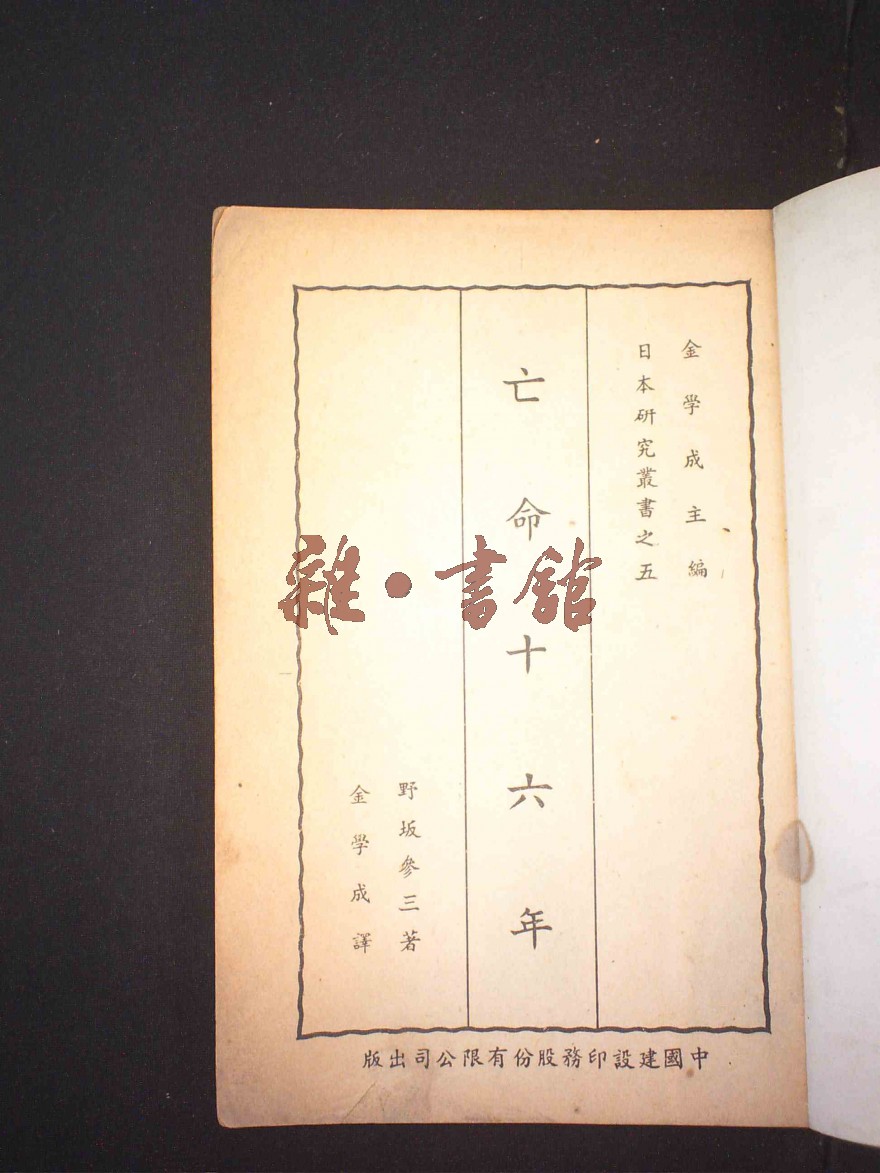 金學成主編
日本研究叢書之五
亡命十六年
野坂參三著
金學成譯
中國建設印務股份有限公司出版
雜·書館